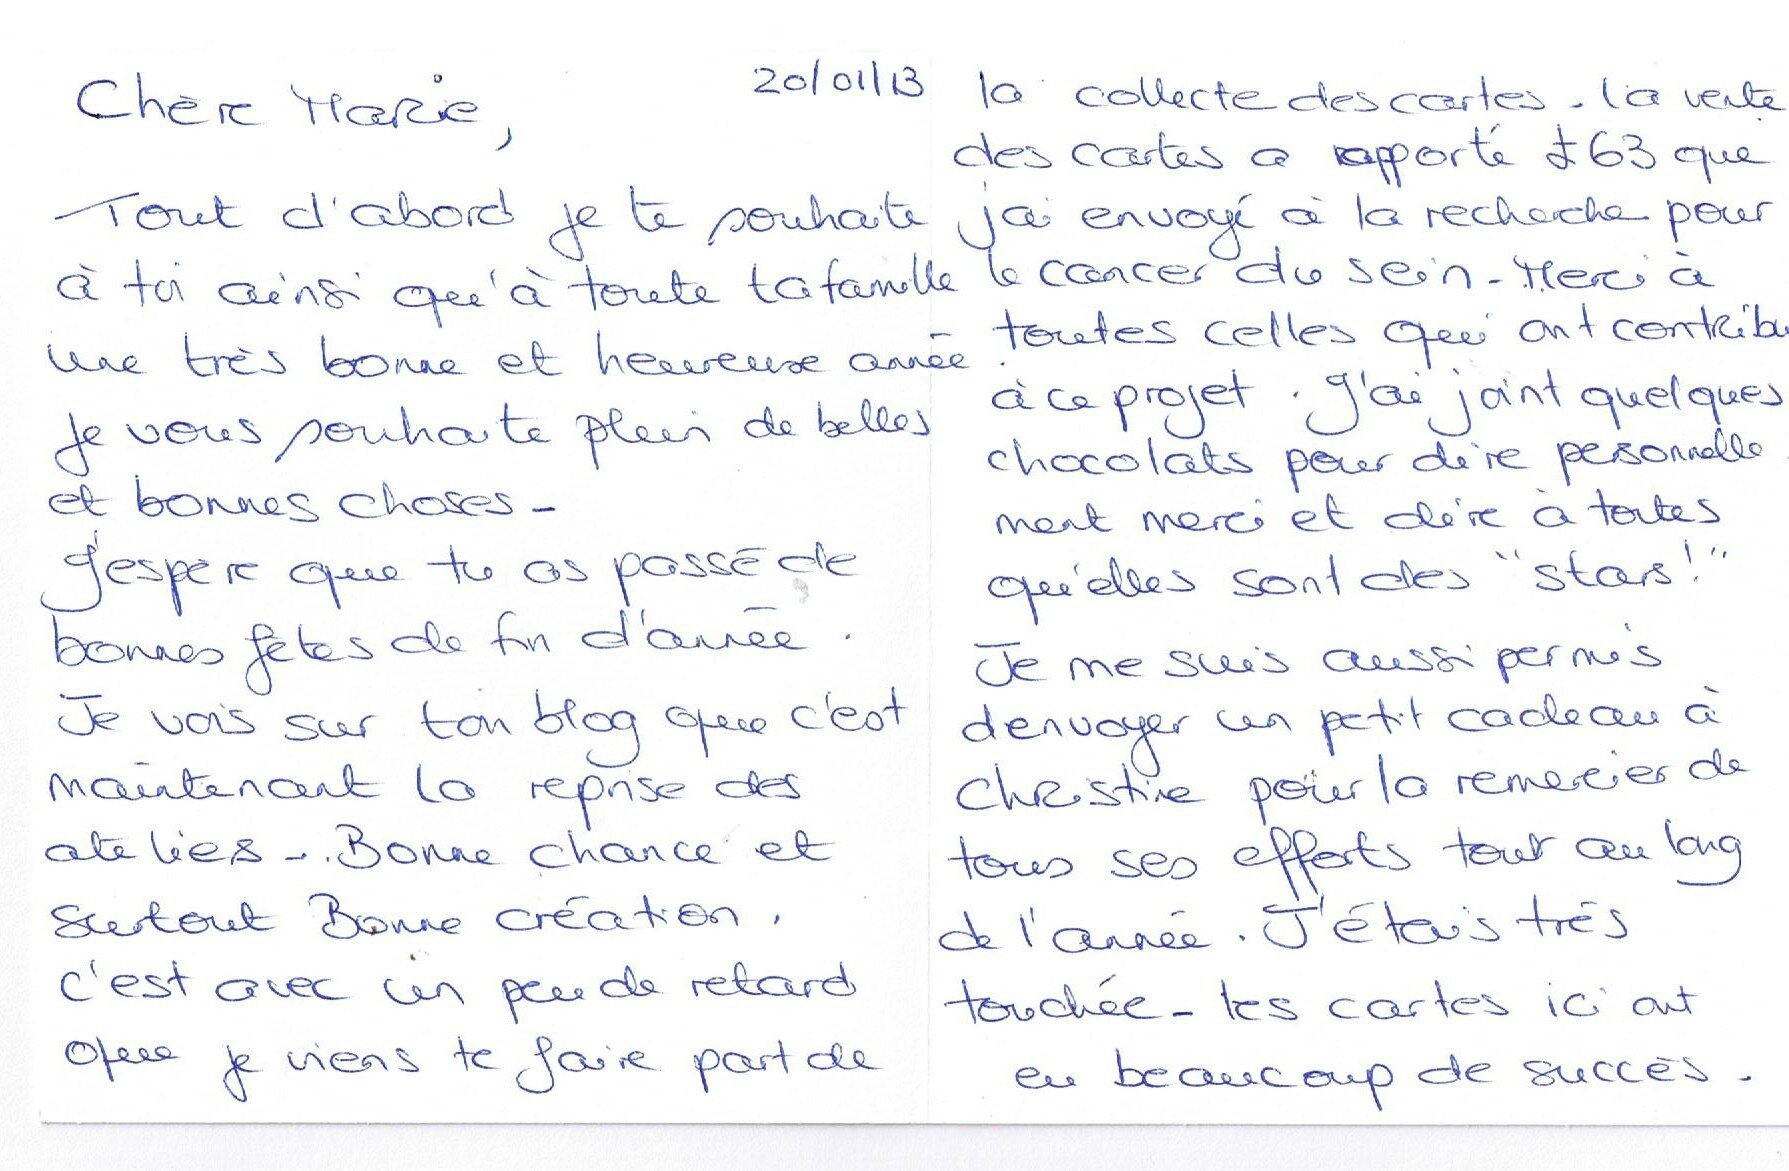 20/01/13
Chère Marie,
Tout d'abord je te souhaite
à toi ainsi qu'à toute ta famille
une très bonne et heureuse année.
Je vous souhaite plein de belles
et bonnes choses -
J'espère que tu as passé de
bonnes fêtes de fin d'année.
Je vois sur ton blog que c'est
maintenant la reprise des
ateliers -. Bonne chance et
surtout Bonne création.
C'est avec un peu de retard
que je viens te faire part de
la collecte des cartes. La vente
des cartes a rapporté £63 que
j'ai envoyé à la recherche pour
le cancer du sein - Merci à
toutes celles qui ont contribu
à ce projet. J'ai joint quelques
chocolats pour dire personnelle
ment merci et dire à toutes
qu'elles sont des "stars!"
Je me suis aussi permis
d'envoyer un petit cadeau à
Christine pour la remercier de
tous ses efforts tout au long
de l'année. J'étais très
touchée - les cartes ici ont
eu beaucoup de succès.